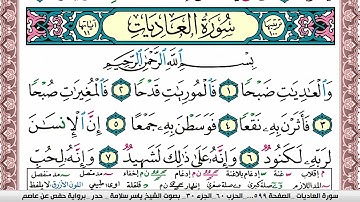 سُورَةُ الْعَادِيَاتِ
بِسْمِ اللَّهِ الرَّحْمَٰنِ الرَّحِيمِ
وَالْعَٰدِيَٰتِ ضَبْحًا ١ فَالْمُورِيَٰتِ قَدْحًا ٢ فَالْمُغِيرَٰتِ صُبْحًا
٣ فَأَثَرْنَ بِهِۦ نَقْعًا ٤ فَوَسَطْنَ بِهِۦ جَمْعًا ٥ إِنَّ الْإِنسَٰنَ
لِرَبِّهِۦ لَكَنُودٌ ٦ وَإِنَّهُۥ عَلَىٰ ذَٰلِكَ لَشَهِيدٌ ٧ وَإِنَّهُۥ لِحُبِّ
سورة العاديات _ الصفحة ٥٩٩ _ الحزب ٦٠ _ الجزء ٣٠ _ بصوت الشيخ ياسر سلامة _ حدر _ برواية حفص عن عاصم